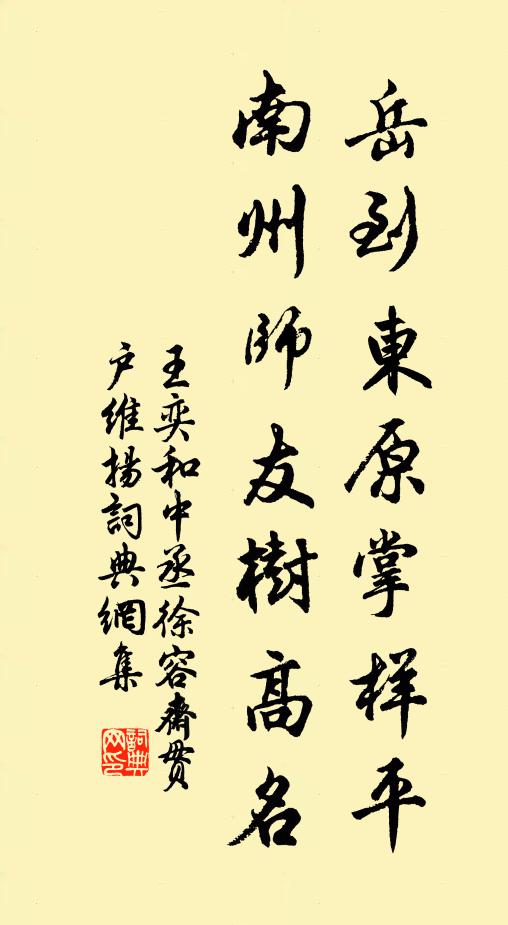 岳到東原掌样平
南州師友樹高名
王奕和中丞徐容齋贯
户維揚詞典網集
詞典
网印